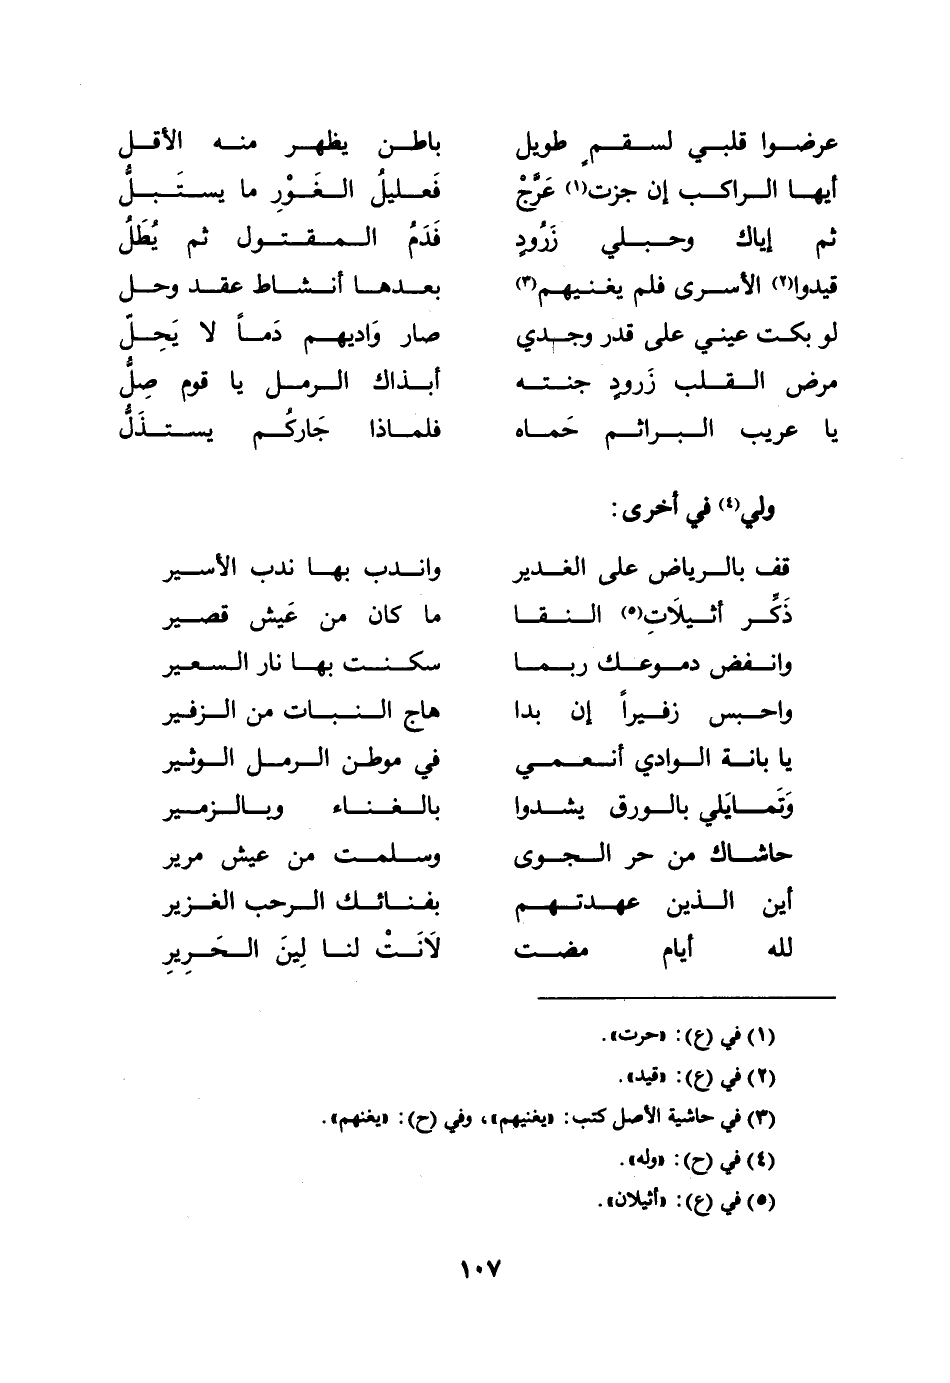 عرضوا قلبي لسقمٍ طويل باطن يظهر منه الأقل
أيها الراكب إن جزت(١) عَرَّجْ فَعليلُ الغَوْرِ ما يستَبلُّ
ثم إياك وحبلي زَرُودٍ فَدَمُ المقتول ثم يُطَلُّ
قيدوا(٢) الأسرى فلم يغنيهم(٣) بعدها أنشاط عقد وحل
لو بكت عيني على قدر وجدي صار وَاديهم دَماً لا يَحِلّ
مرض القلب زَرودٍ جنته أبذاك الرمل يا قوم صِلُّ
يا عريب البراثم حَماه فلماذا جَاركُم يستذَلُّ
ولي(٤) في أخرى:
قف بالرياض على الغدير واندب بها ندب الأسير
ذَكِّر أثيلَاتِ(٥) النقا ما كان من عَيش قصير
وانفض دموعك ربما سكنت بها نار السعير
واحبس زفيراً إن بدا هاج النبات من الزفير
يا بانة الوادي أنعمي في موطن الرمل الوثير
وَتَمايَلي بالورق يشدوا بالغناء وبالزمير
حاشاك من حر الجوى وسلمت من عيش مرير
أين الذين عهدتهم بفنائك الرحب الغزير
لله أيام مضت لَانَتْ لنا لِينَ الحَريرِ
(١) في (ع): «حرت».
(٢) في (ع): «قيد».
(٣) في حاشية الأصل كتب: «يغنيهم»، وفي (ح): «يغنهم».
(٤) في (ح): «وله».
(٥) في (ع): «أثيلان».
١٠٧